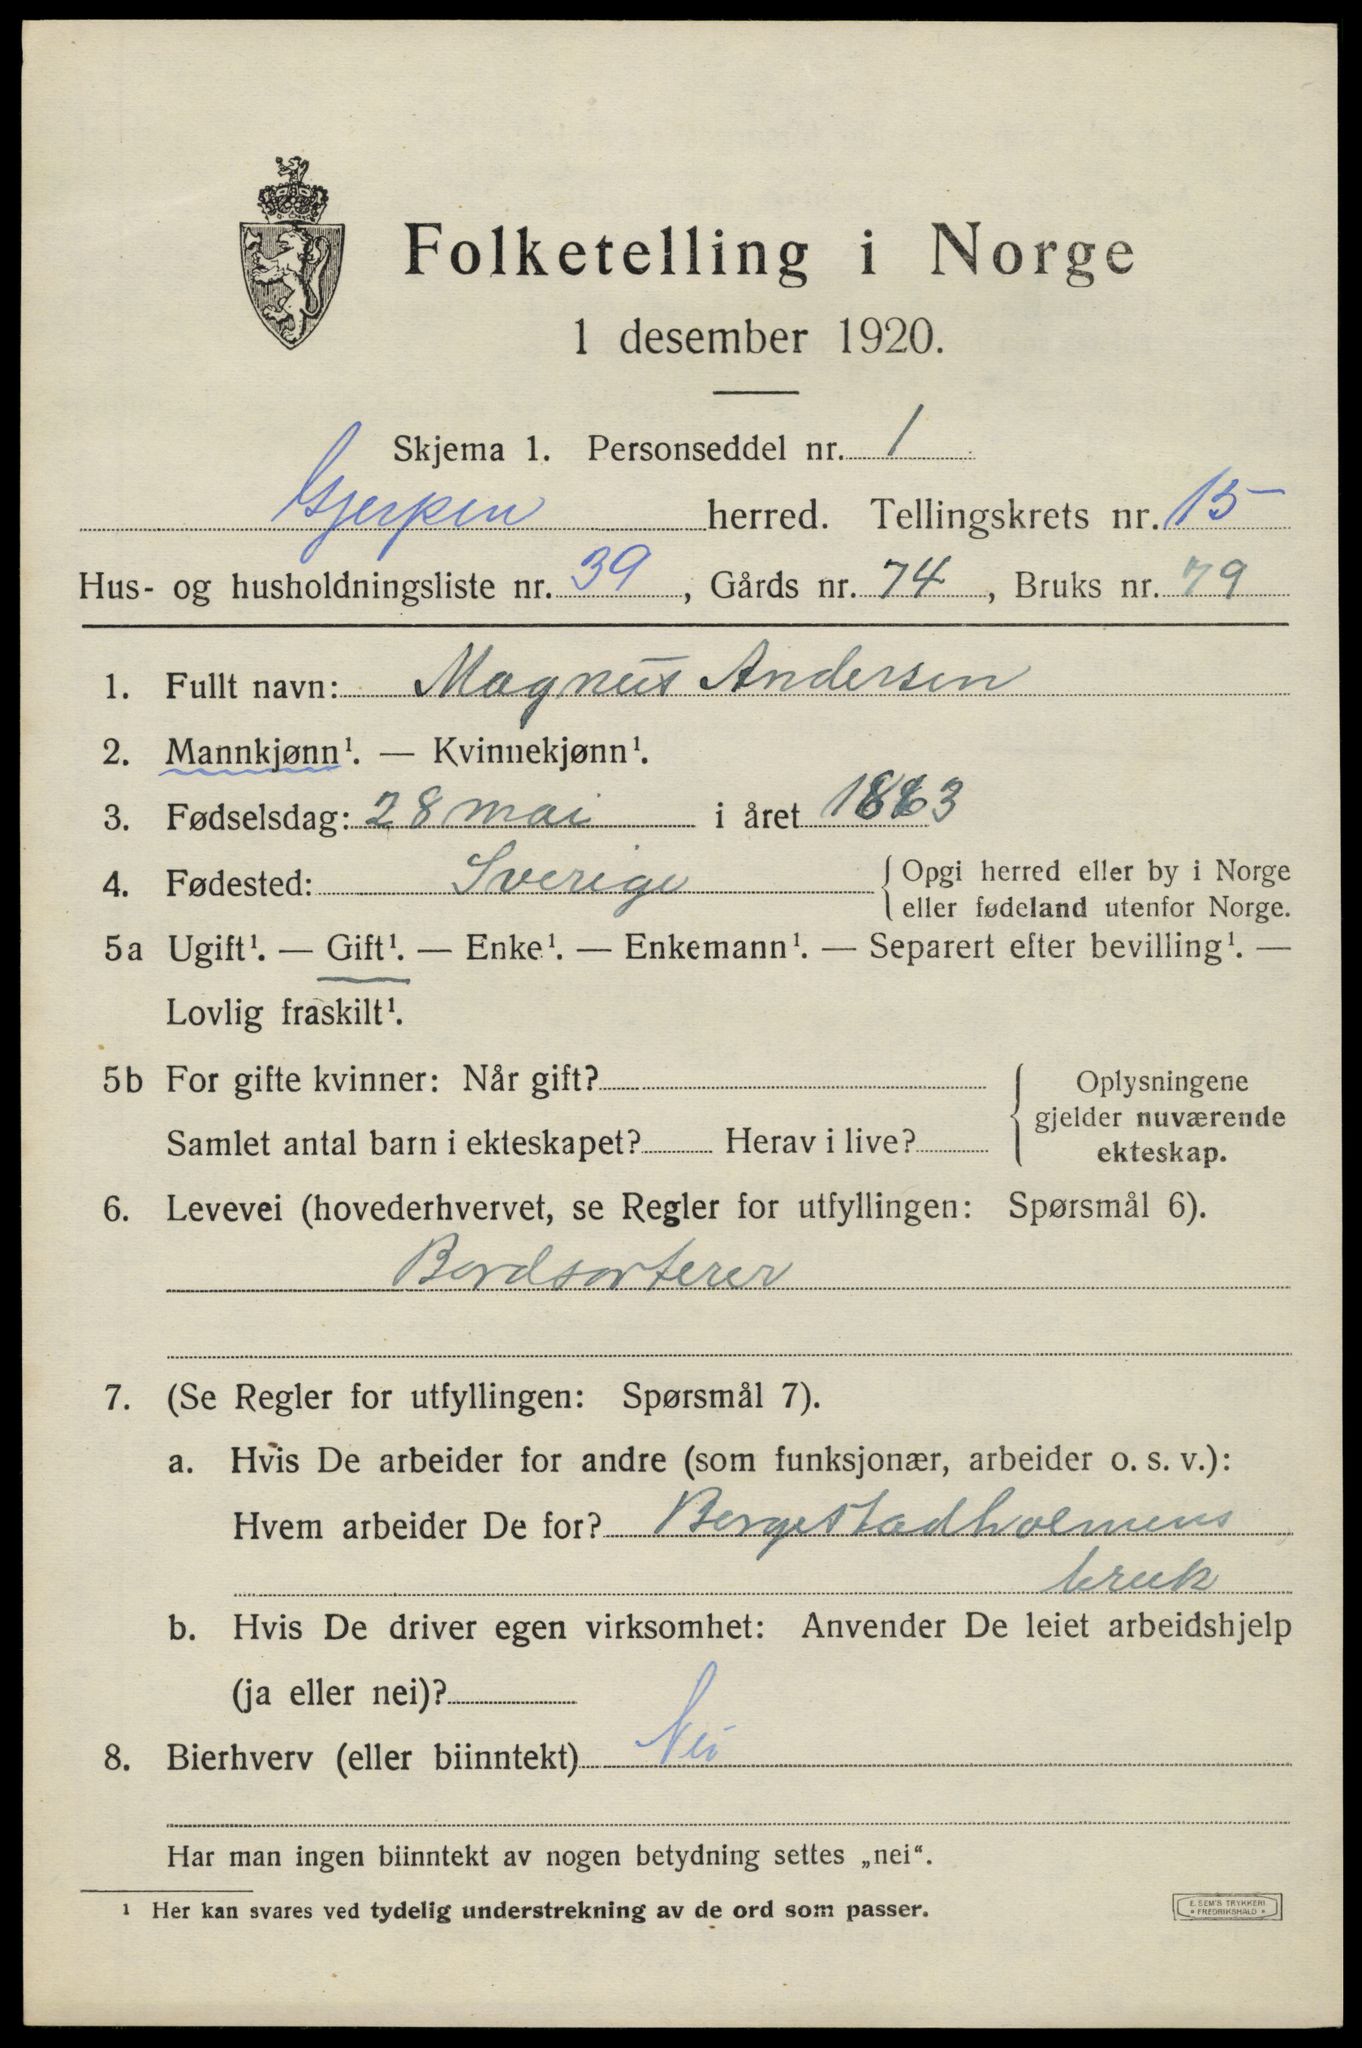 Folketelling i Norge
1 desember 1920.
Skjema 1. Personseddel nr. 1
Gjerpen herred. Tellingskrets nr. 15
Hus- og husholdningsliste nr. 39, Gårds nr. 74, Bruks nr. 79
1. Fullt navn: Magnus Andersen
2. Mannkjønn¹. — Kvinnekjønn¹.
3. Fødselsdag: 28 mai i året 1863
4. Fødested: Sverige { Opgi herred eller by i Norge
eller fødeland utenfor Norge.
5a Ugift¹. — Gift¹. — Enke¹. — Enkemann¹. — Separert efter bevilling¹. —
Lovlig fraskilt¹.
5b For gifte kvinner: Når gift?
Samlet antal barn i ekteskapet? Herav i live?
{ Oplysningene
gjelder nuværende
ekteskap.
6. Levevei (hovederhvervet, se Regler for utfyllingen: Spørsmål 6).
Bordsorterer
7. (Se Regler for utfyllingen: Spørsmål 7).
a. Hvis De arbeider for andre (som funksjonær, arbeider o. s. v.):
Hvem arbeider De for? Borgestadholmens
bruk
b. Hvis De driver egen virksomhet: Anvender De leiet arbeidshjelp
(ja eller nei)?
8. Bierhverv (eller biinntekt) Nei
Har man ingen biinntekt av nogen betydning settes „nei“.
¹ Her kan svares ved tydelig understrekning av de ord som passer.
E. SEM'S TRYKKERI
• FREDRIKSHALD •